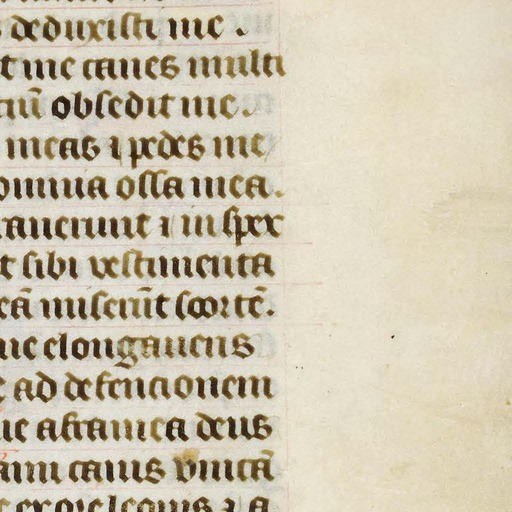 deduxisti me .
t me canes multi
ciū obsedit me .
meas ⁊ pedes me
omnia ossa mea .
rauerunt ⁊ inspex
t sibi vestimenta
eā miserūt sortē .
ne elongaueris
ad defencionem
ue a framea deus
anu canis vnicā